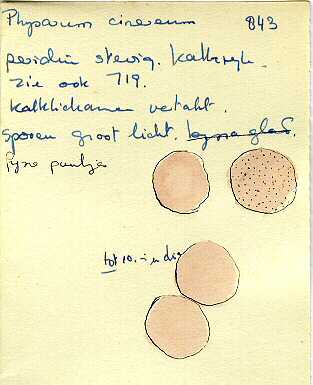 Physarum cinereum 843
peridium stevig. kalkrijk.
zie ook 719.
kalklichamen vertakt.
sporen groot licht. bijna glad.
fijne puntjes
tot 10.- in dia